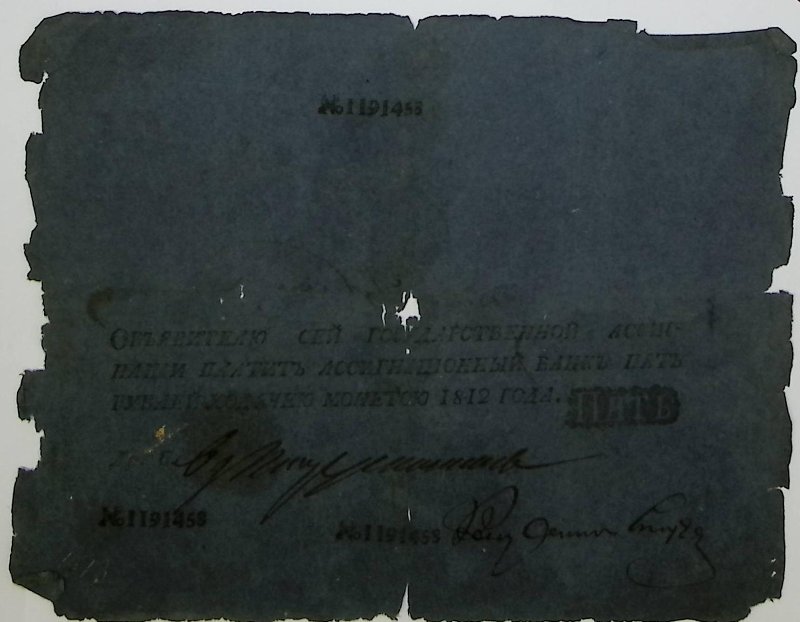 №1191458
ОБЪЯВИТЕЛЮ СЕЙ ГОСУДАРСТВЕННОЙ АССИГ-
НАЦИИ ПЛАТИТЪ АССИГНАЦИОННЫЙ БАНКЪ ПЯТЬ
РУБЛЕЙ ХОДЯЧЕЮ МОНЕТОЮ 1812 ГОДА. ПЯТЬ
№1191458
№1191458